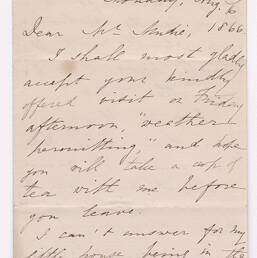 Monday, Aug. 6
1866
Dear Mr. Mudie,
I shall most gladly
accept your kindly
offered visit on Friday
afternoon, "weather
permitting," and hope
you will take a cup of
tea with me before
you leave.
I can't answer for my
little house being in the